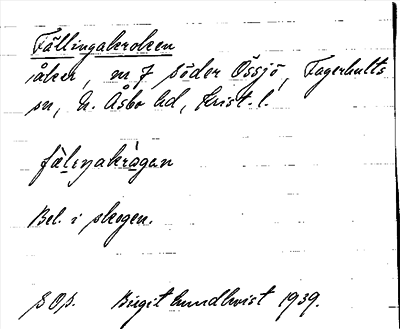 Fällingakroken
åker, m f söder Össjö, Fagerhults
sn, N. Åsbo hd, Krist. l.
Bel. i skogen.
Birgit Lundkvist 1939.